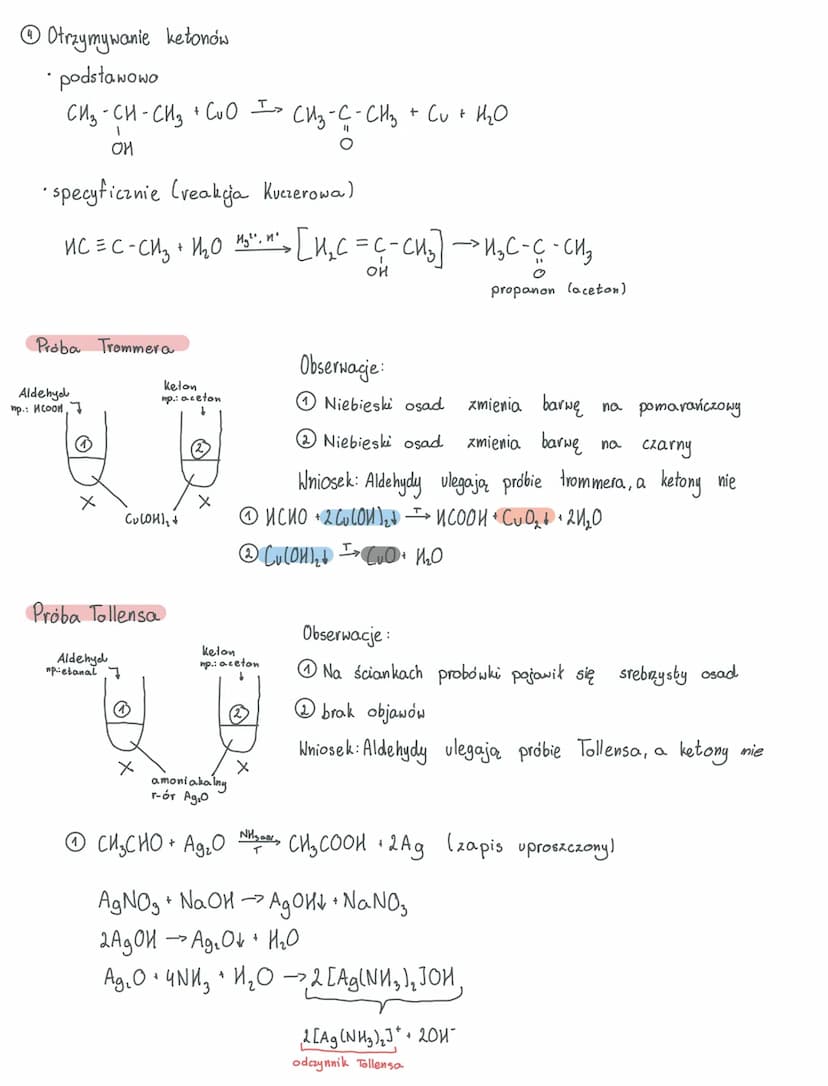 ④ Otrzymywanie ketonów
· podstawowo
CH₃-CH-CH₃ + CuO T→ CH₃-C-CH₃ + Cu + H₂O
OH O
· specyficznie (reakcja Kuczerowa)
HC≡C-CH₃ + H₂O Hg²⁺, H⁺→ [H₂C=C-CH₃] → H₃C-C-CH₃
OH O
propanon (aceton)
Próba Trommera
Aldehyd
np.: HCOOH
keton
np.: aceton
① ②
Cu(OH)₂↓
Obserwacje:
① Niebieski osad zmienia barwę na pomarańczowy
② Niebieski osad zmienia barwę na czarny
Wniosek: Aldehydy ulegają próbie trommera, a ketony nie
① HCHO + 2Cu(OH)₂↓ T→ HCOOH + CuO₂↓ + 2H₂O
② Cu(OH)₂↓ T→ CuO + H₂O
Próba Tollensa
Aldehyd
np.: etanal
keton
np.: aceton
① ②
amoniakalny
r-ór Ag₂O
Obserwacje:
① Na ściankach probówki pojawił się srebrzysby osad
② brak objawów
Wniosek: Aldehydy ulegają próbie Tollensa, a ketony nie
① CH₃CHO + Ag₂O NH₃₍aq₎, T→ CH₃COOH + 2Ag (zapis uproszczony)
AgNO₃ + NaOH → AgOH↓ + NaNO₃
2AgOH → Ag₂O↓ + H₂O
Ag₂O + 4NH₃ + H₂O → 2[Ag(NH₃)₂]OH
2[Ag(NH₃)₂]⁺ + 2OH⁻
odczynnik Tollensa